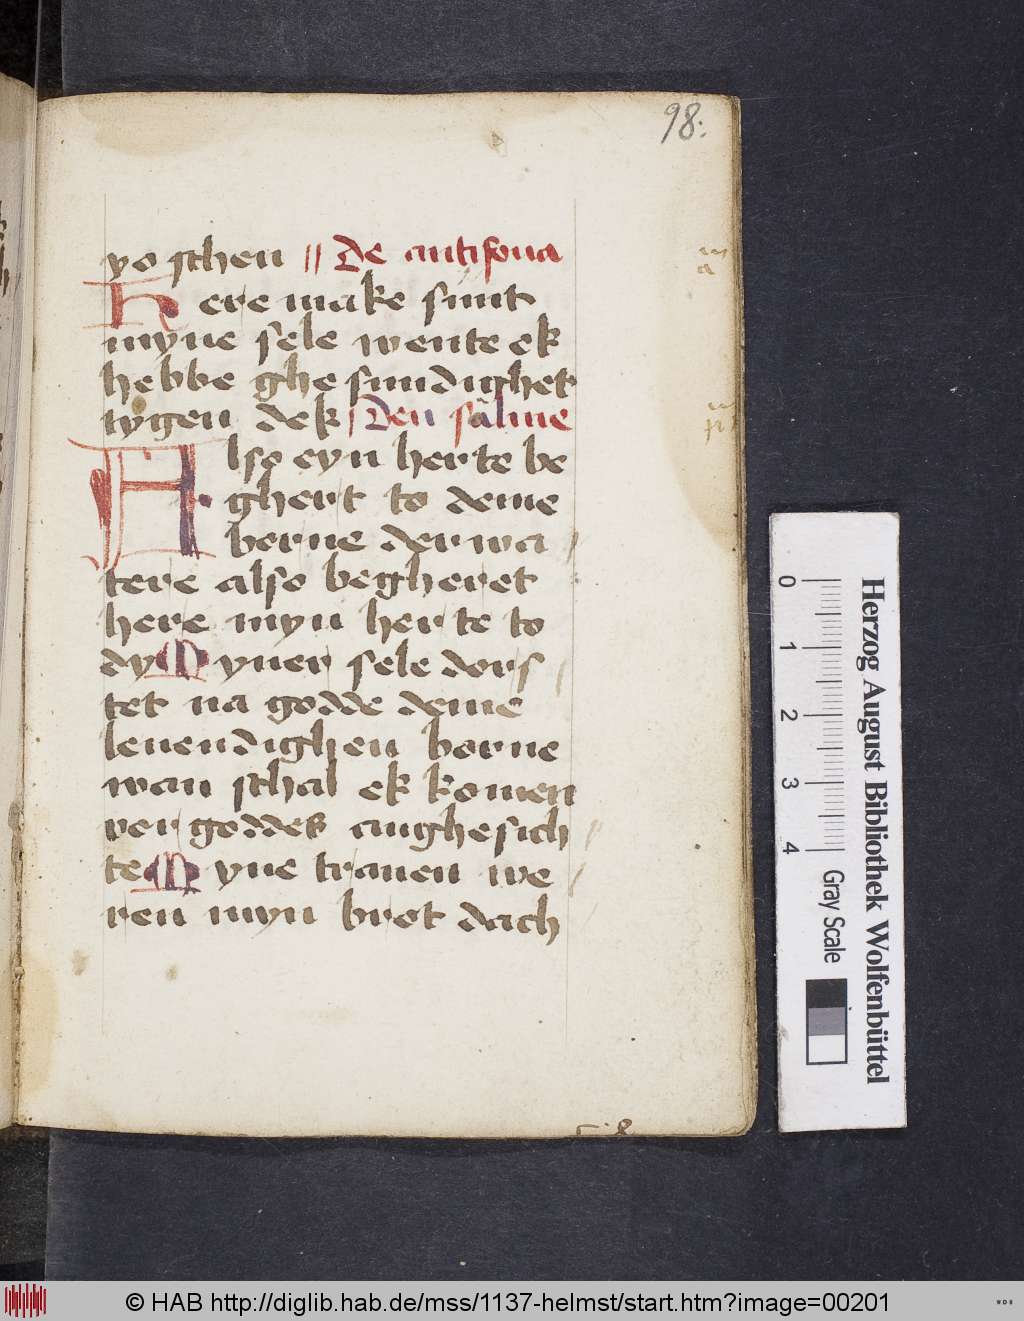 98.
yo schen // De antifona
Here make sunt
myne sele wente ek
hebbe ghe sundighet
tygen dek Den salme
Also eyn herte be
ghert to deme
borne der wa
tere also begheret
here myn herte to
dy Myner sele dors
tet na godde deme
leuendighen borne
wan schal ek komen
vor goddes anghesich
te Myne tranen we
ren myn brot dach
Herzog August Bibliothek Wolfenbüttel
0 1 2 3 4 Gray Scale
© HAB http://diglib.hab.de/mss/1137-helmst/start.htm?image=00201